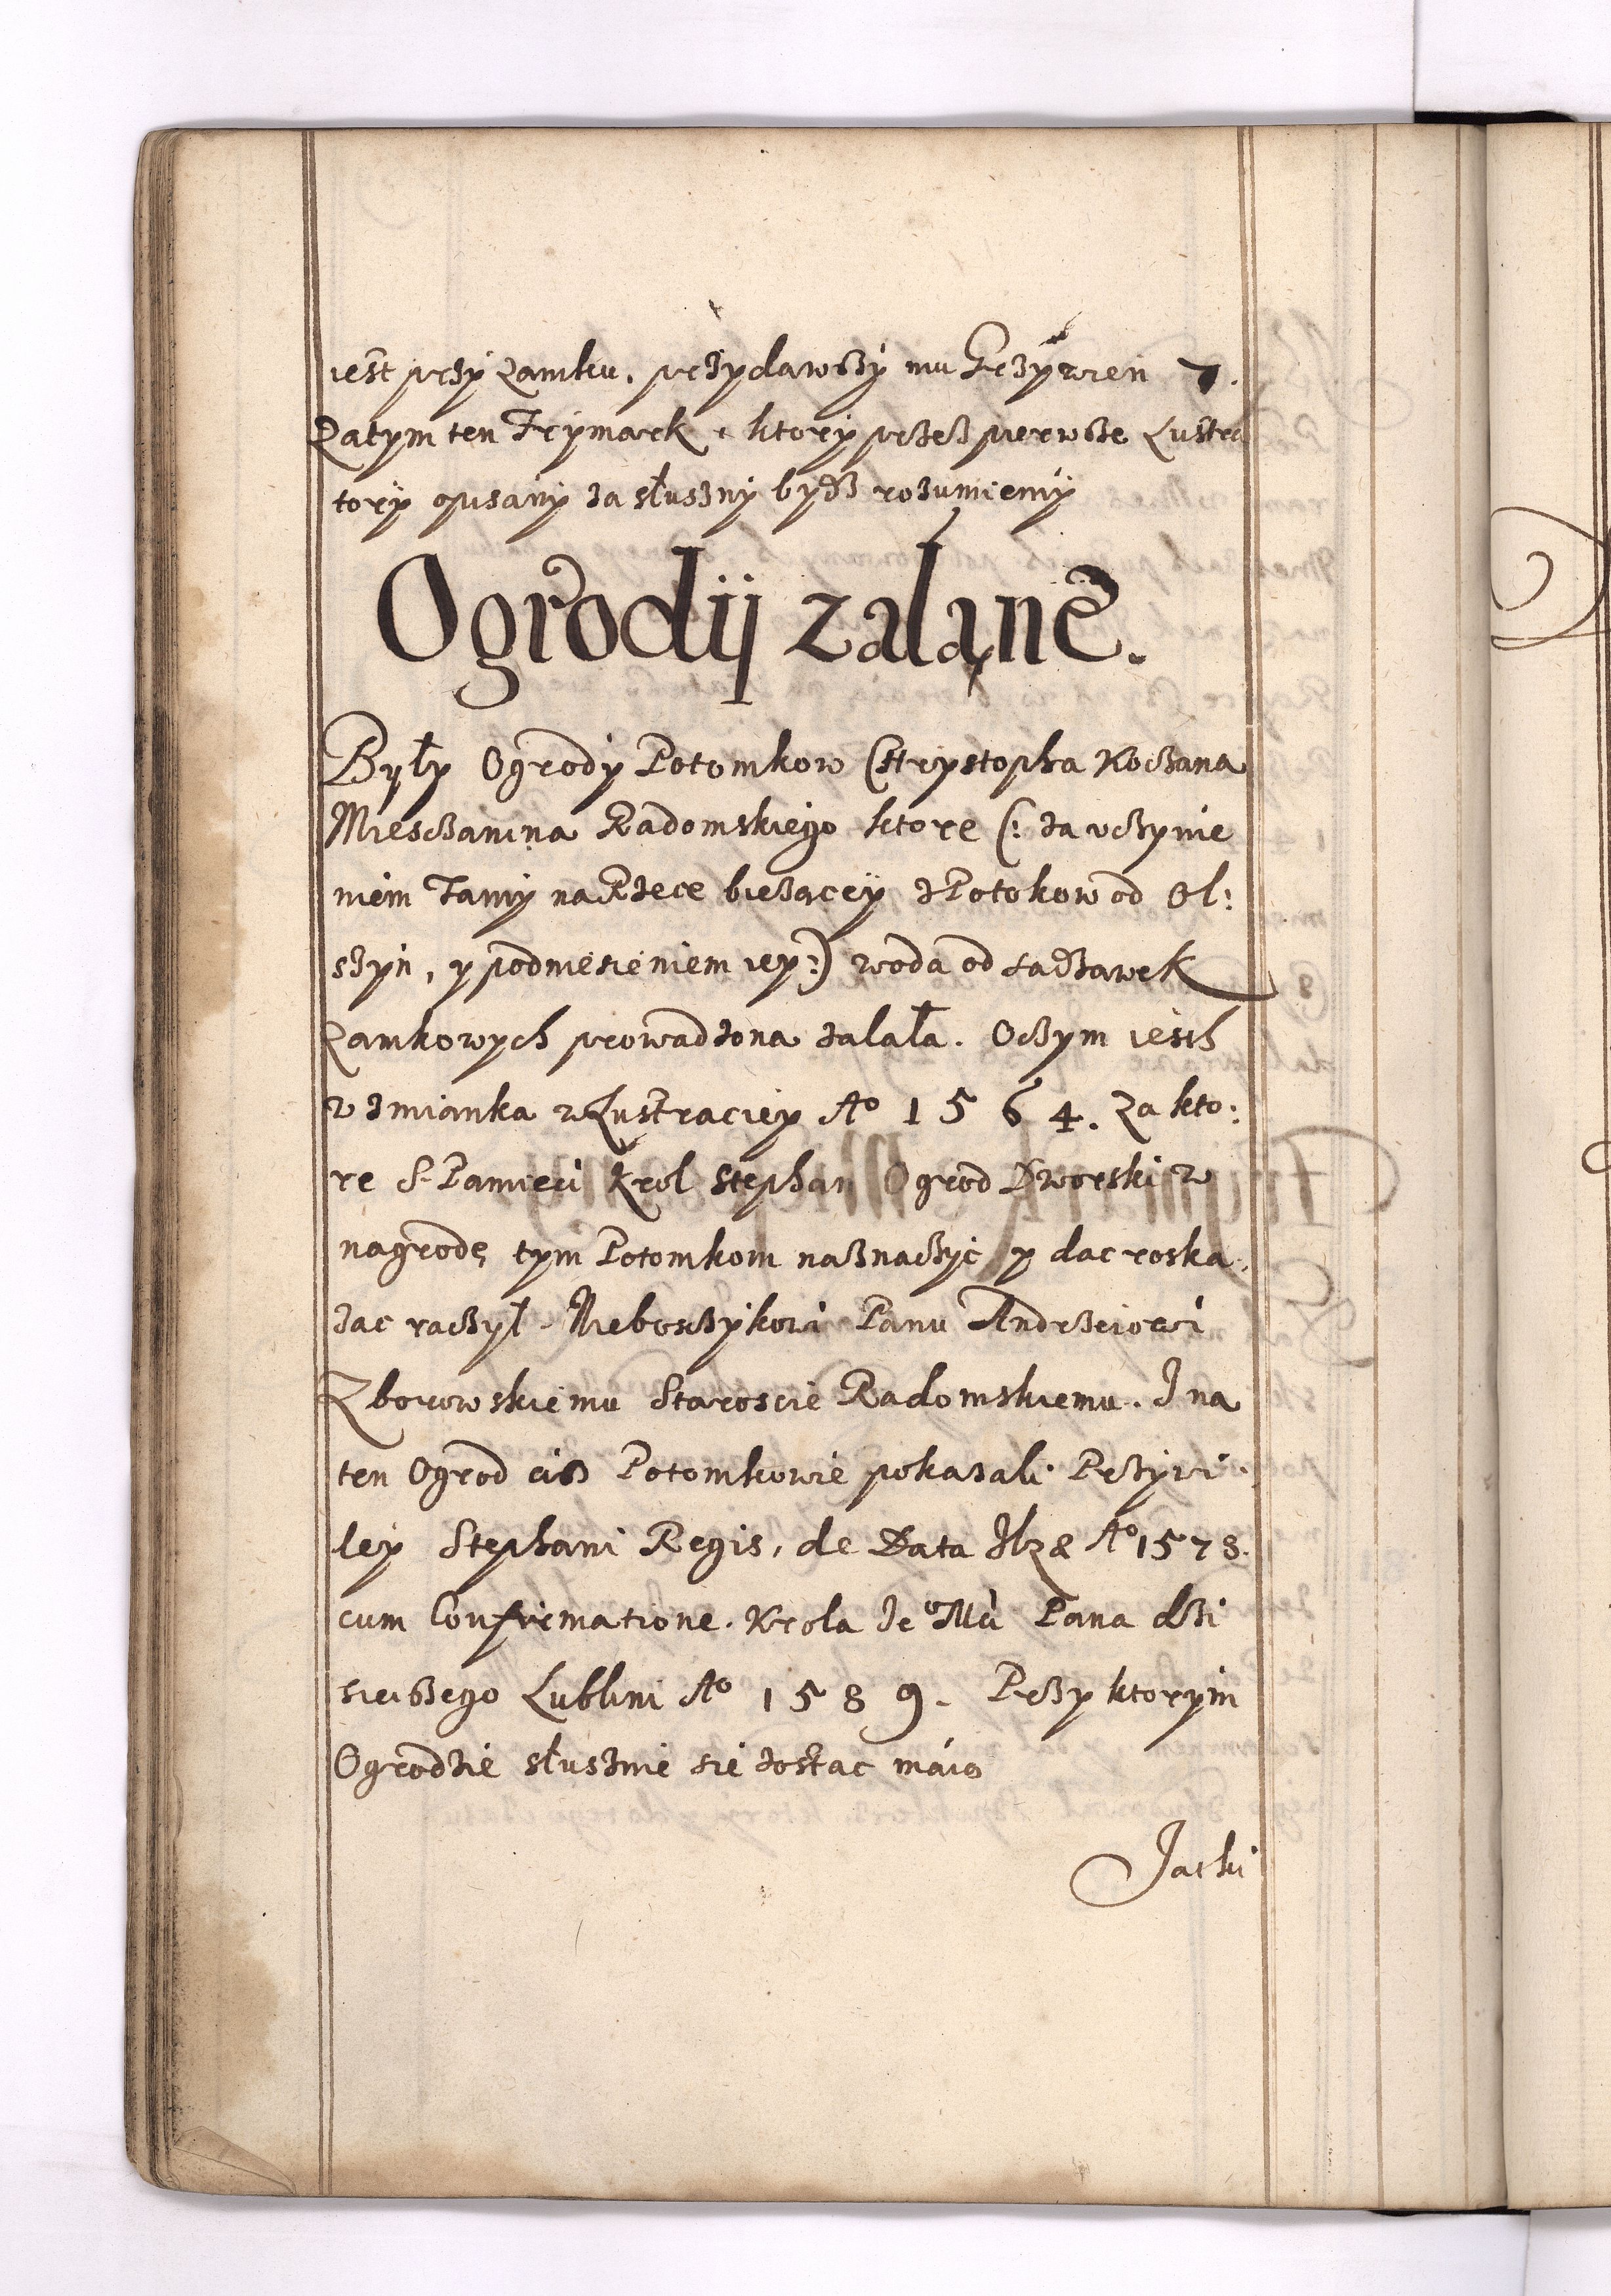 iest przÿ Zamku, przydawszÿ mu Grzÿwien 7.
Zatym ten Frÿmark, ktorÿ przez pierwsze Lustra
torÿ opisanÿ za słusznÿ bydź rozumiemÿ
Ogrodÿ zaląné.
Były Ogrodÿ Potomkow Chrystopha Koczana
Miesczanina Radomskiego ktore (: za vczynie
niem Tamÿ na Rzece bieżąceÿ z Potokow od Ol:
szyn, y podniesieniem iey:) woda od Sadzawek
Zamkowych prowadzona zalała. O czym iesth
wzmianka w Lustraciey Aº 1564. Za kto:
re S. Pamieci Krol Stephan Ogrod Dworski w
nagrodę tym Potomkom naznaczÿć y dac roska,
zac raczył. Nieboszczykowi Panu Andrzeiowi
Zborowskiemu Staroscie Radomskiemu. I na
ten Ogrod ciż Potomkowie pokazali Przÿwi,
ley Stephani Regis, de Data Ilzæ Aº 1578.
cum Confirmatione. Krola Jeº Mči Pana dzi
sieiszego Lublini Aº 1589. Przy ktorÿm
Ogrodzie słusznie sie zostac máią
Jatki